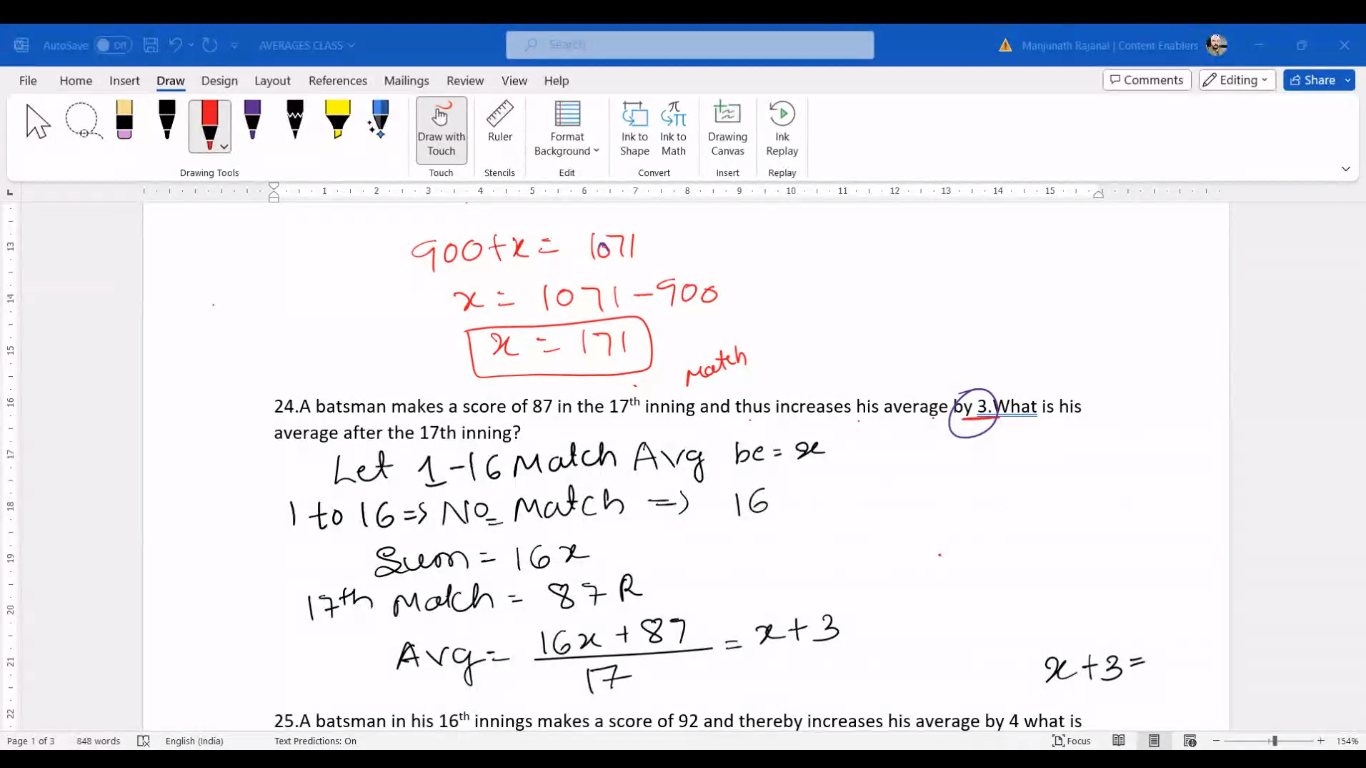 AutoSave Off AVERAGES CLASS Search Manjunath Rajanal | Content Enablers
File Home Insert Draw Design Layout References Mailings Review View Help Comments Editing Share
Draw with Touch Ruler Format Background Ink to Shape Ink to Math Drawing Canvas Ink Replay
Drawing Tools Touch Stencils Edit Convert Insert Replay
1 2 3 4 5 6 7 8 9 10 11 12 13 14 15
13
14
15
16
17
18
19
20
21
22
900+x = 1071
x = 1071-900
x = 171
Match
24.A batsman makes a score of 87 in the 17th inning and thus increases his average by 3.What is his
average after the 17th inning?
Let 1-16 Match Avg be = x
1 to 16 => No Match => 16
Sum = 16x
17th Match = 87 R
Avg = 16x + 87 / 17 = x+3
x+3=
25.A batsman in his 16th innings makes a score of 92 and thereby increases his average by 4 what is
Page 1 of 3 848 words English (India) Text Predictions: On Focus 154%